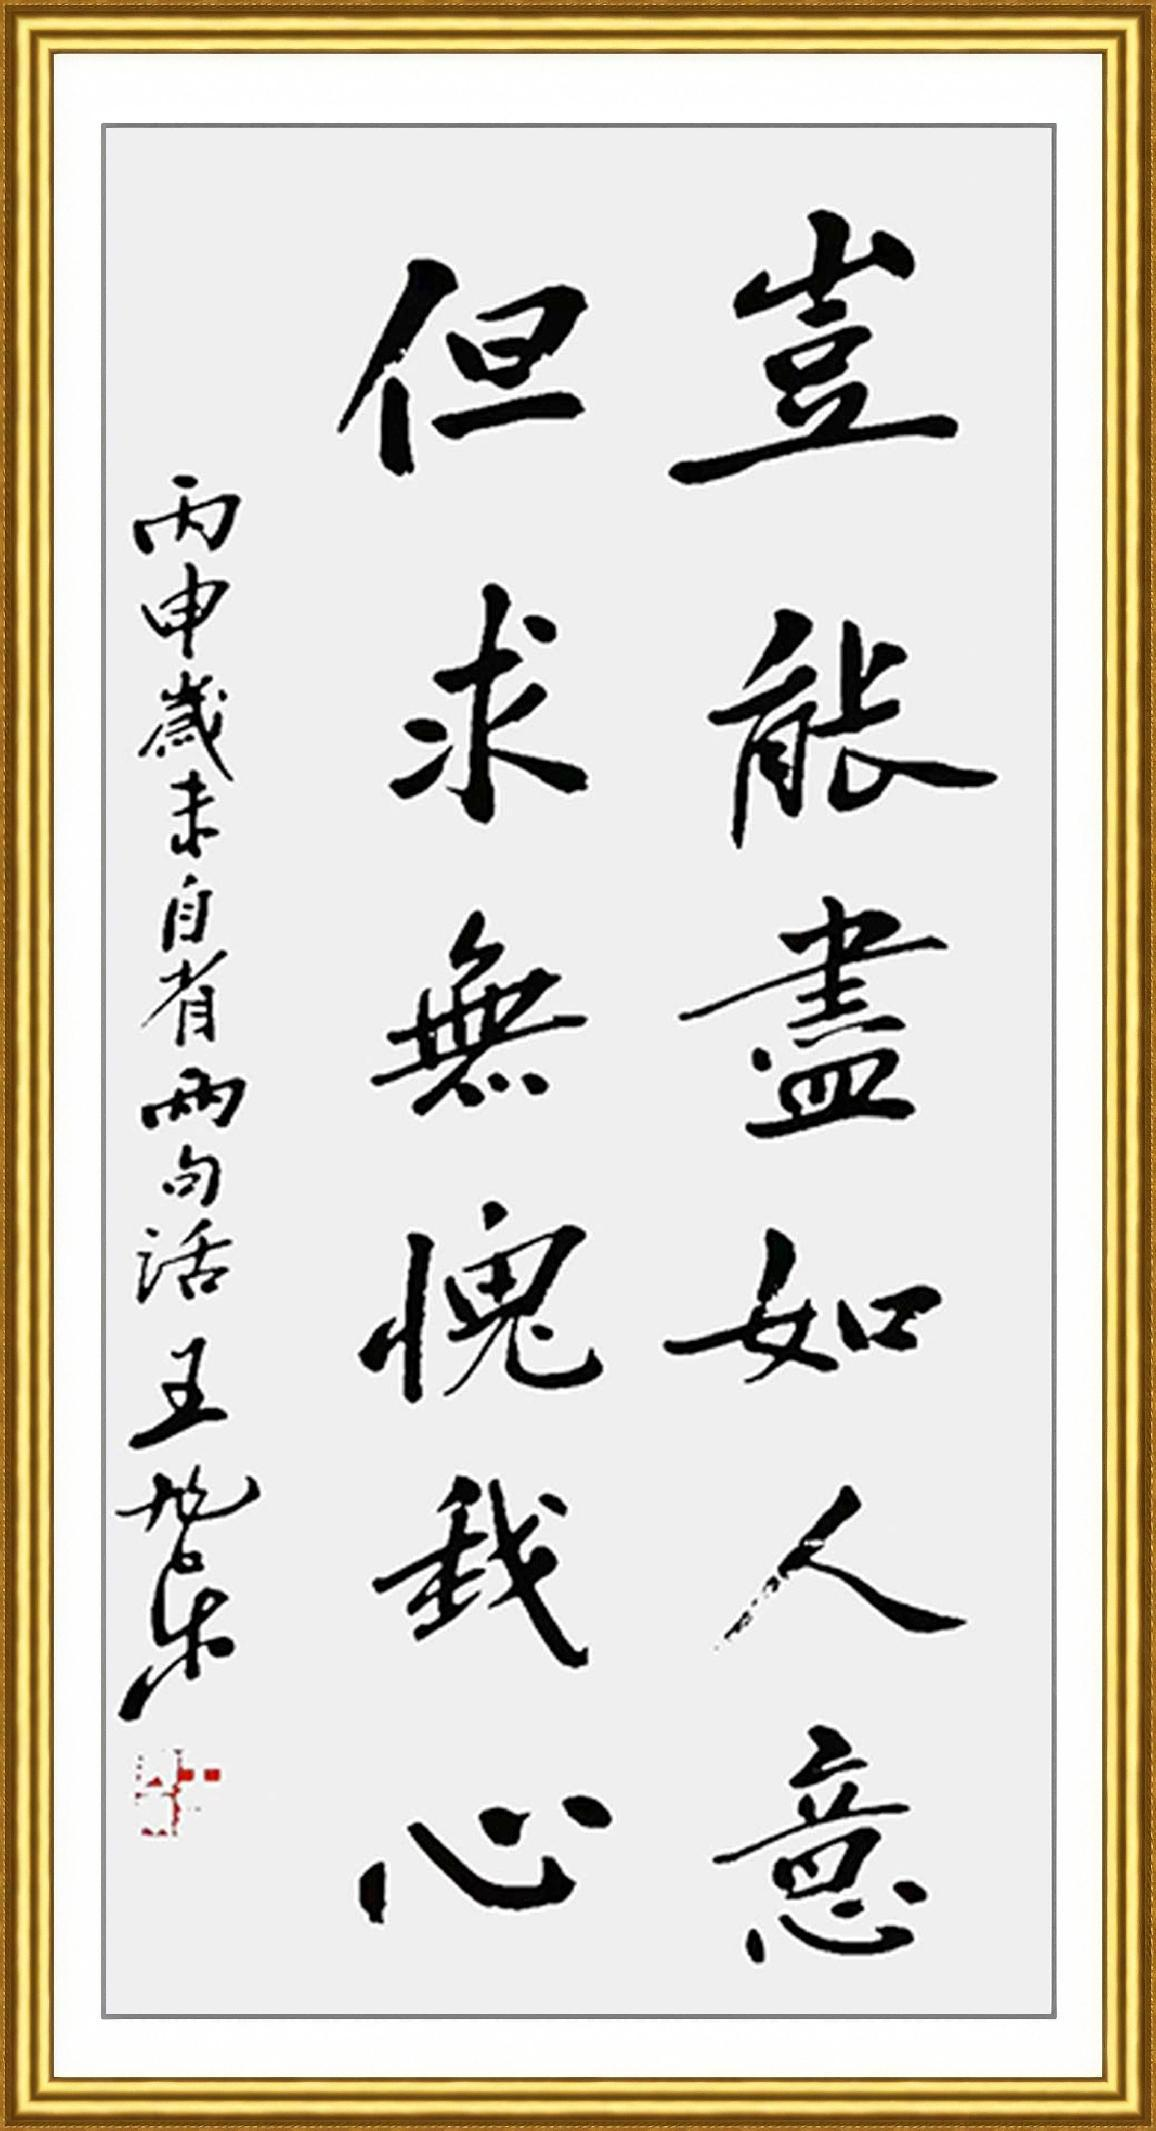 豈能盡如人意
但求無愧我心
丙申歲末自省兩句話 王旭東